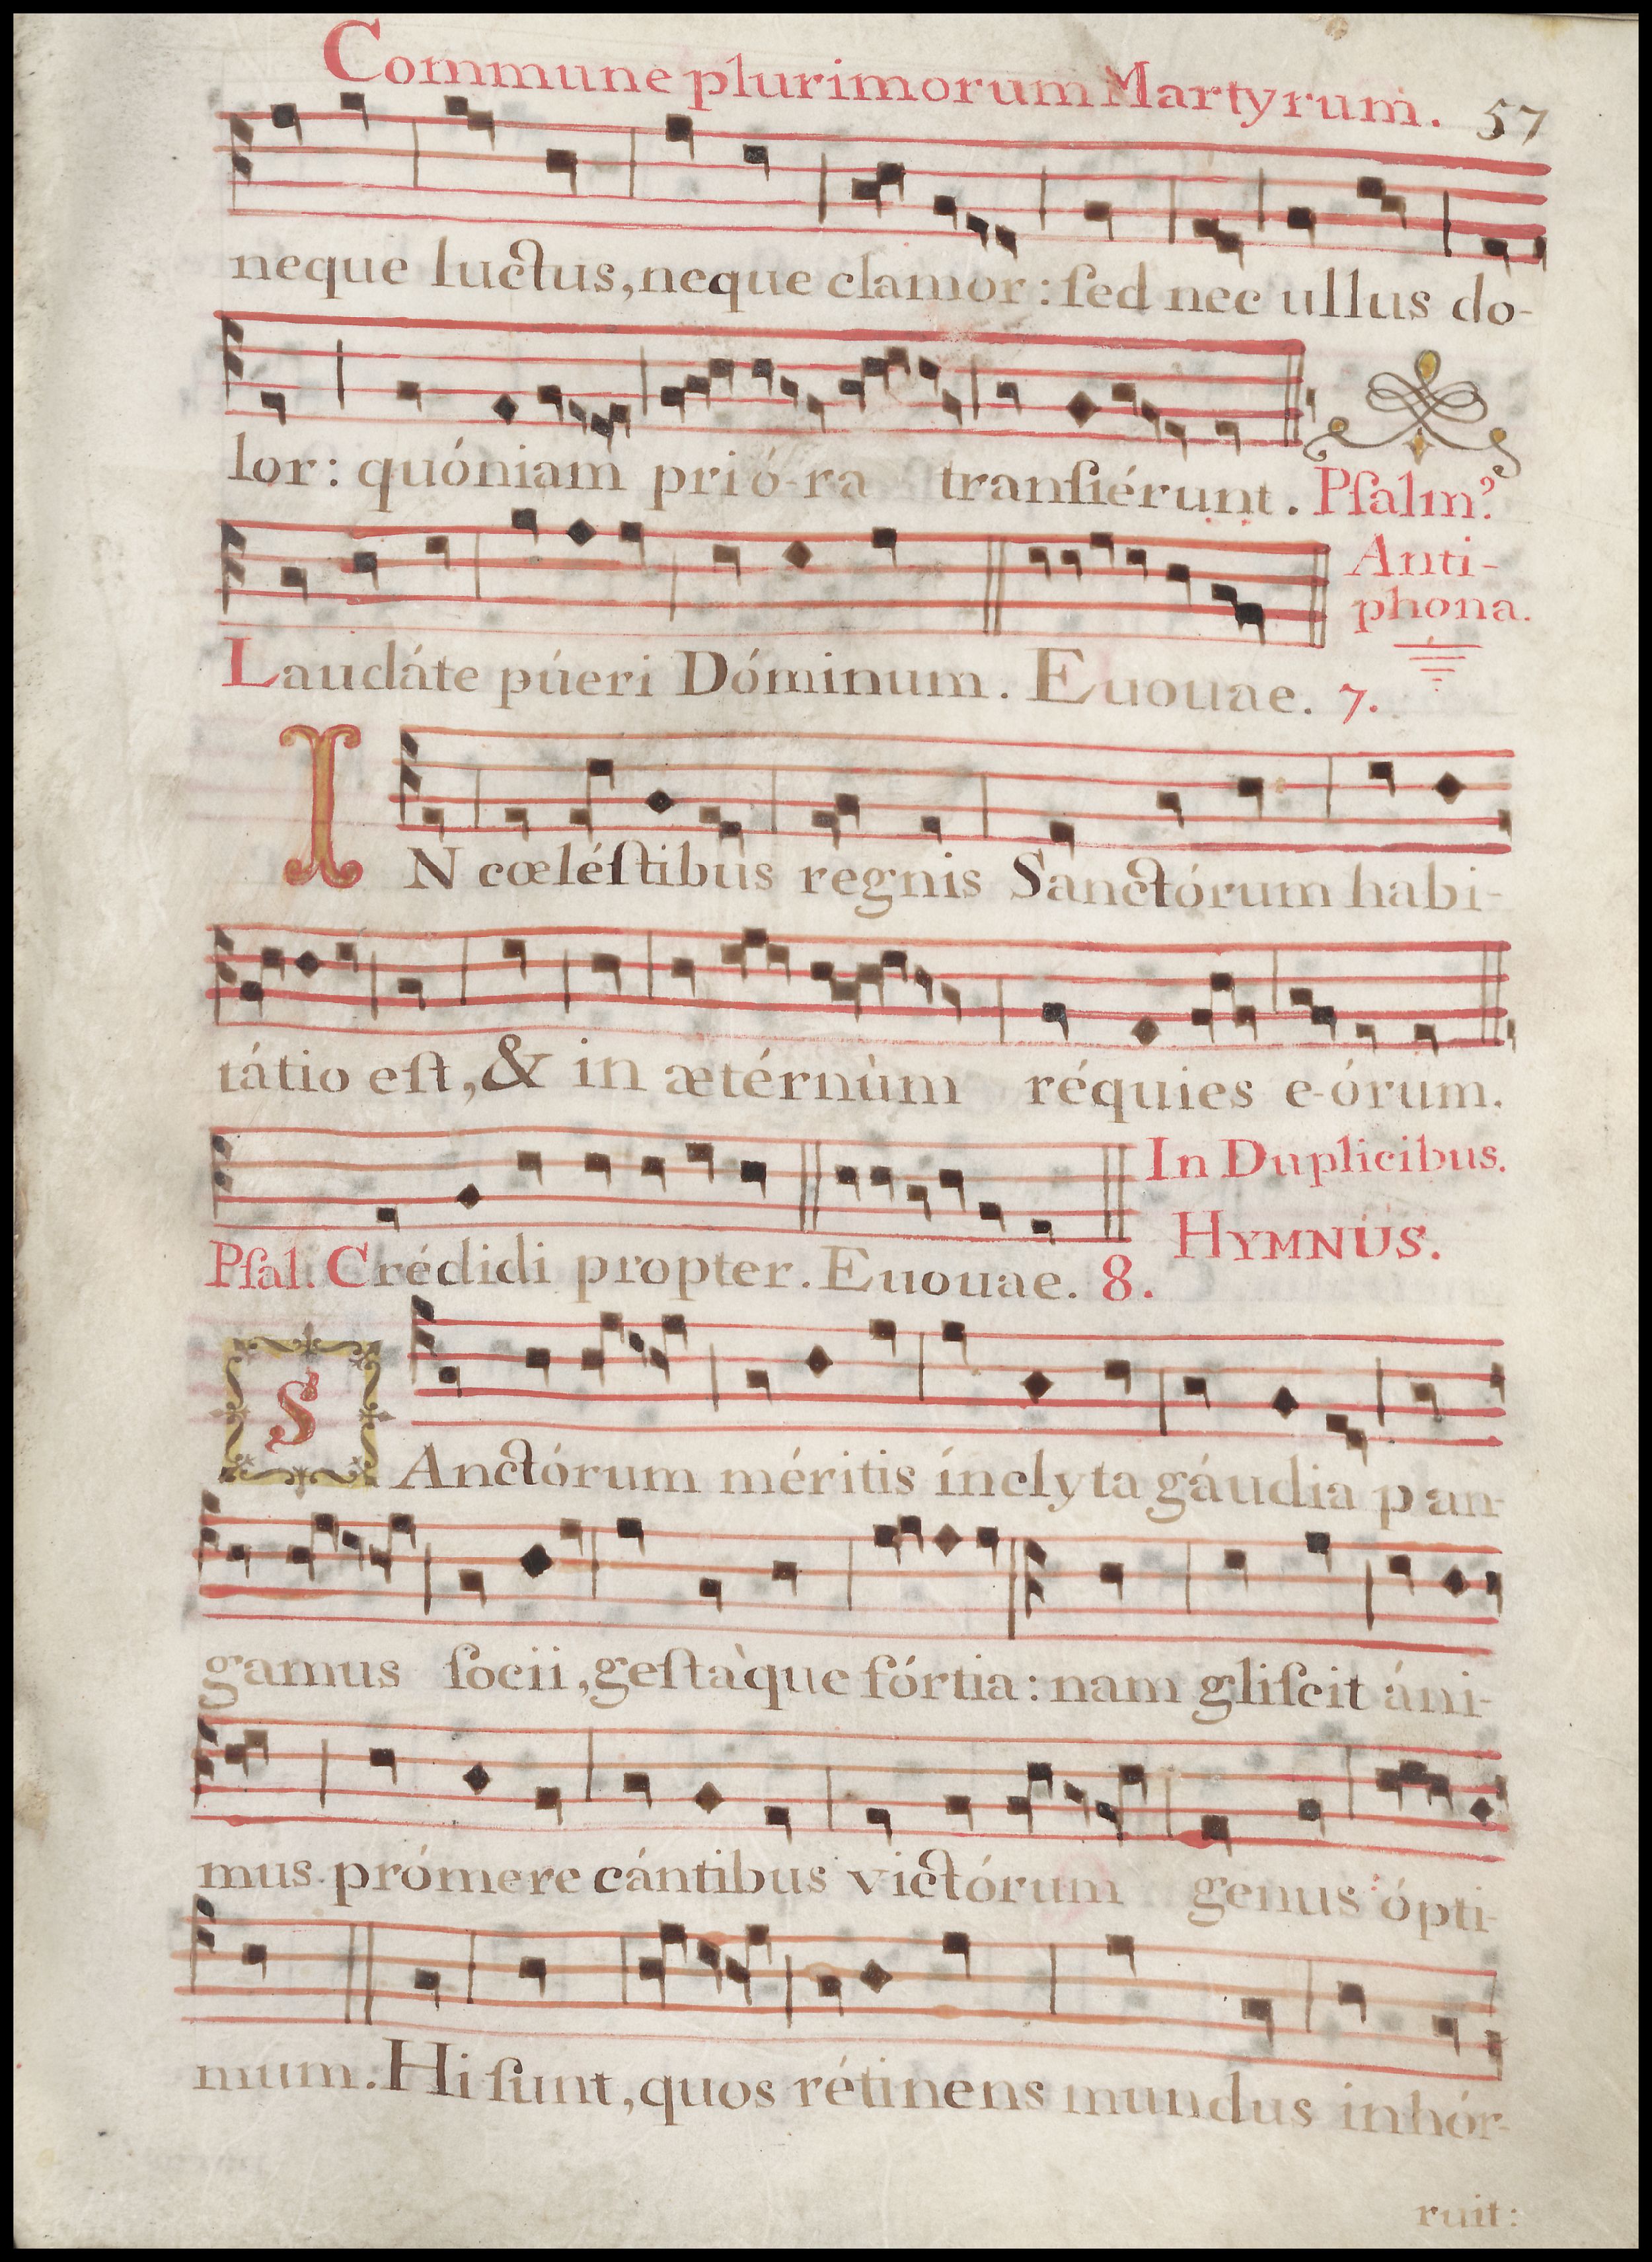 Commune plurimorum Martyrum. 57
neque luctus, neque clamor: ſed nec ullus do-
lor: quóniam prió-ra tranſiérunt. Pſalm⁹.
Anti-
phona.
Laudáte púeri Dóminum. Euouae. 7.
IN cœléſtibus regnis Sanctórum habi-
tátio eſt, & in ætérnùm réquies e-órum.
In Duplicibus.
Pſal. Crédidi propter. Euouae. 8. HYMNUS.
SAnctórum méritis ínclyta gáudia pan-
gamus ſocii, geſtàque fórtia: nam gliſcit áni-
mus prómere cántibus victórum genus ópti-
mum. Hi ſunt, quos rétinens mundus inhór-
ruit: